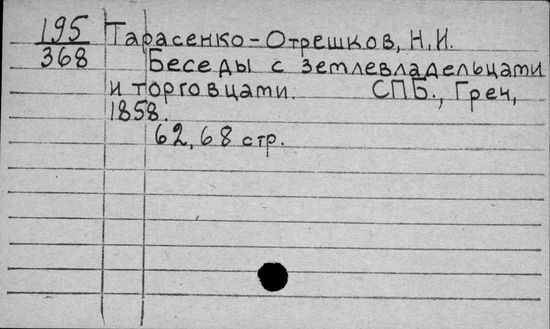 195 Тарасенко-Отрешков, Н.И.
368 Беседы с зетлевладельцати
и торговцати. СПБ., Греч,
1858.
62, 68 стр.